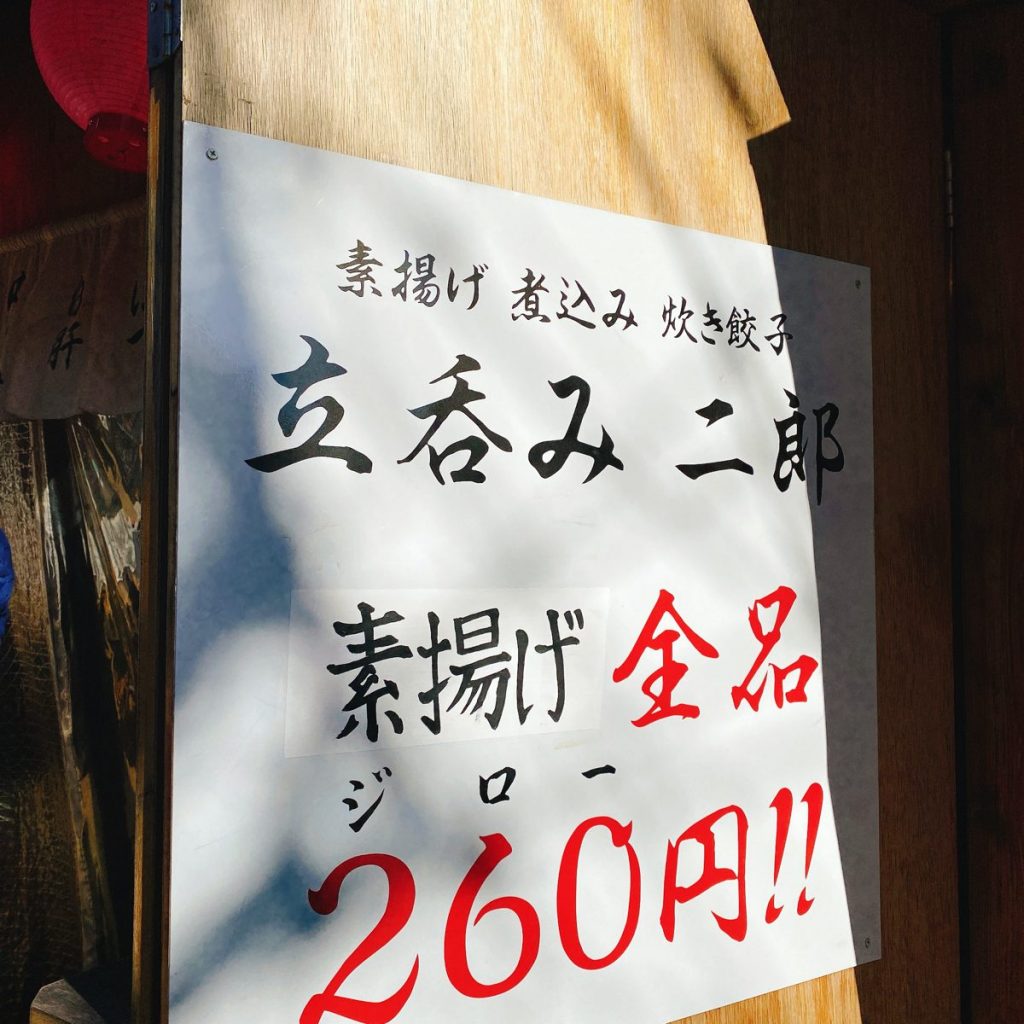 素揚げ 煮込み 炊き餃子
立呑み 二郎
素揚げ 全品
ジロー
260円!!